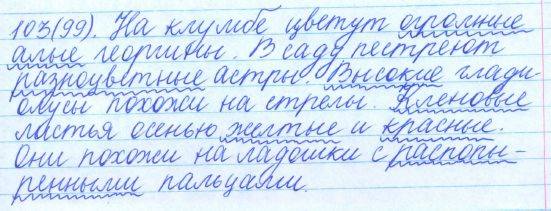 103(99). На клумбе цветут огромные
алые георгины. В саду пестреют
разноцветные астры. Высокие глади-
олусы похожи на стрелы. Кленовые
листья осенью желтые и красные.
Они похожи на ладошки с растопы-
ренными пальцами.